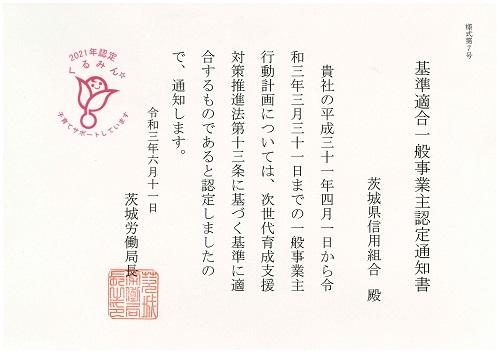 様式第7号
基準適合一般事業主認定通知書
茨城県信用組合 殿
貴社の平成三十一年四月一日から令
和三年三月三十一日までの一般事業主
行動計画については、次世代育成支援
対策推進法第十三条に基づく基準に適
合するものであると認定しましたの
で、通知します。
令和三年六月十一日
茨城労働局長
2021年認定
くるみん
子育てサポートしています